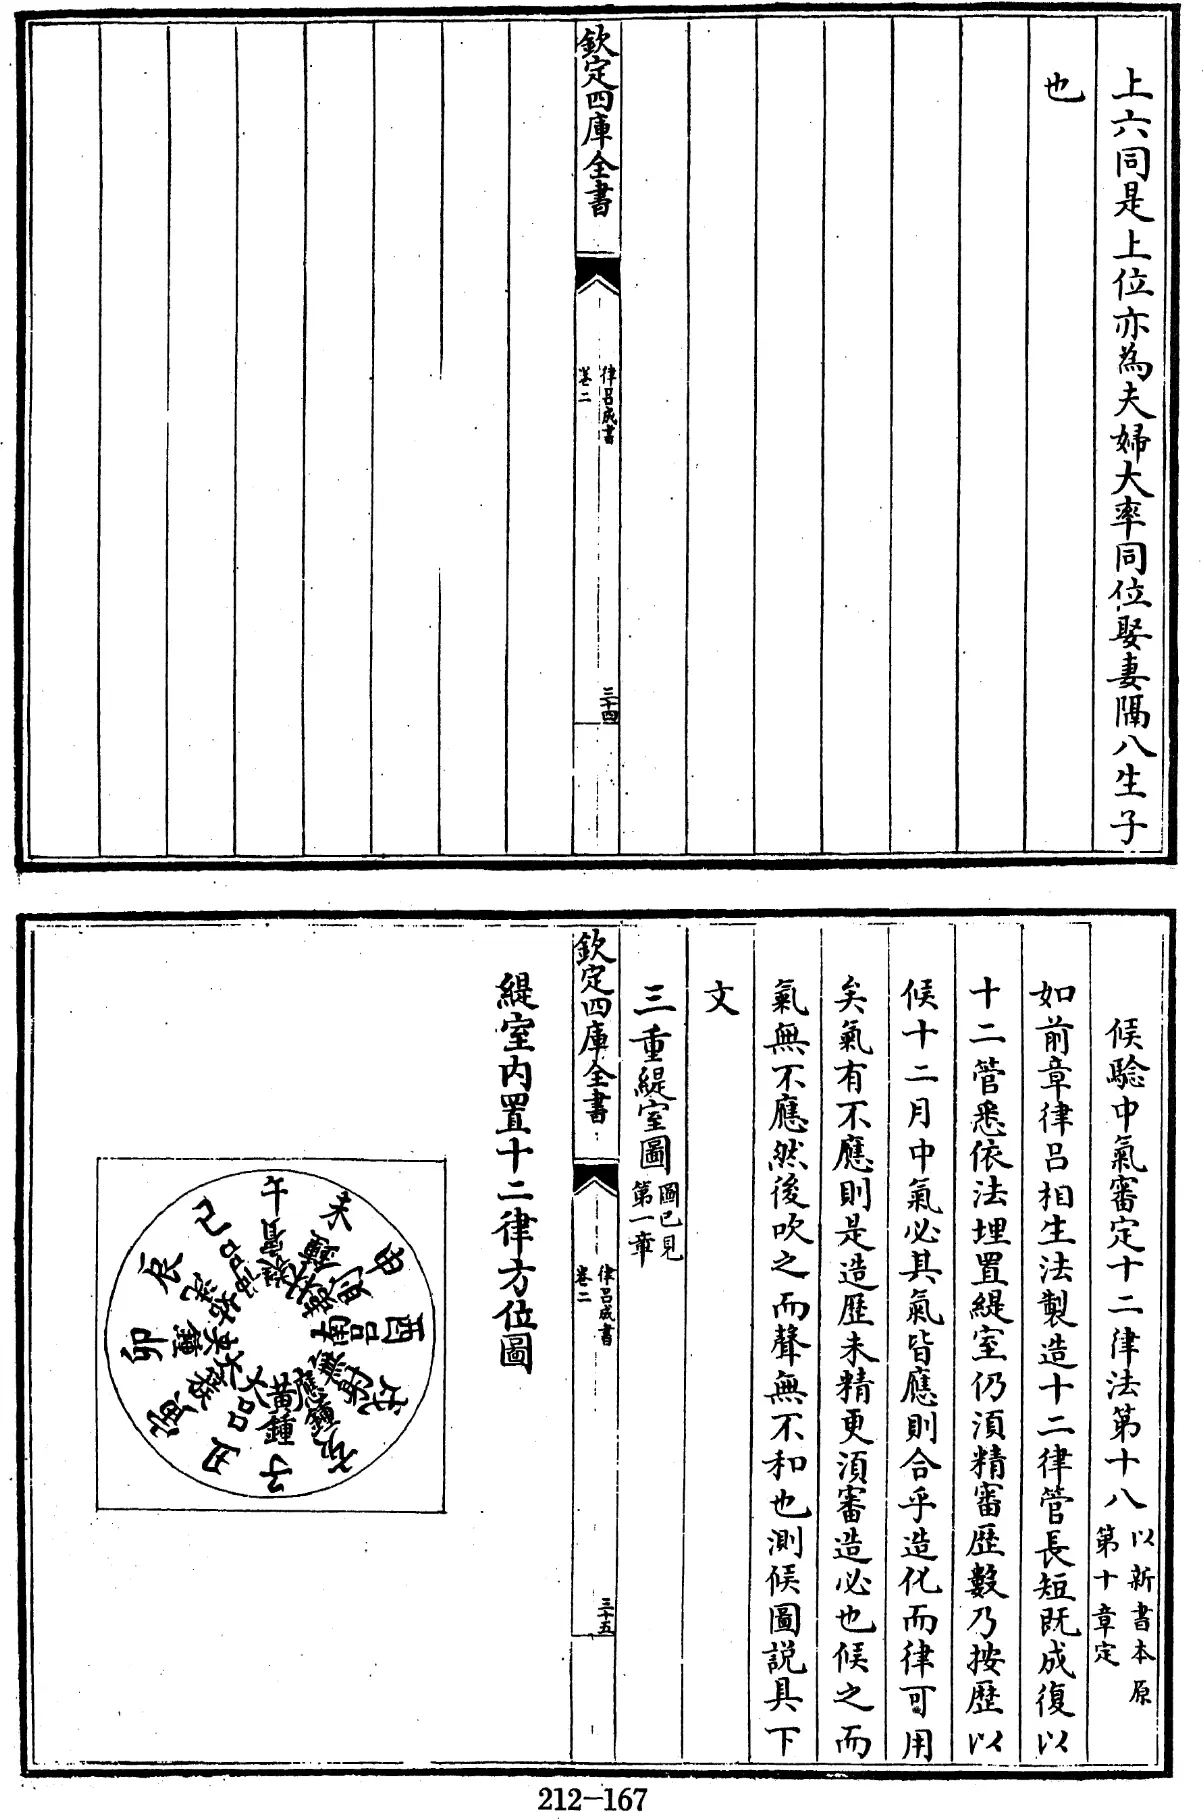 上六同是上位亦為夫婦大率同位娶妻隔八生子
也
欽定四庫全書
律呂成書
卷二
三十四
候驗中氣審定十二律法第十八
以新書本原
第十章定
如前章律呂相生法製造十二律管長短既成復以
十二管悉依法埋置緹室仍須精審歷數乃按歷以
候十二月中氣必其氣皆應則合乎造化而律可用
矣氣有不應則是造歷未精更須審造必也候之而
氣無不應然後吹之而聲無不和也測候圖說具下
文
三重緹室圖
圖已見
第一章
欽定四庫全書
律呂成書
卷二
三十五
緹室內置十二律方位圖
午 蕤賓
未 林鍾
申 夷則
酉 南呂
戌 無射
亥 應鍾
子 黃鍾
丑 大呂
寅 太簇
卯 夾鍾
辰 姑洗
巳 仲呂
212-167